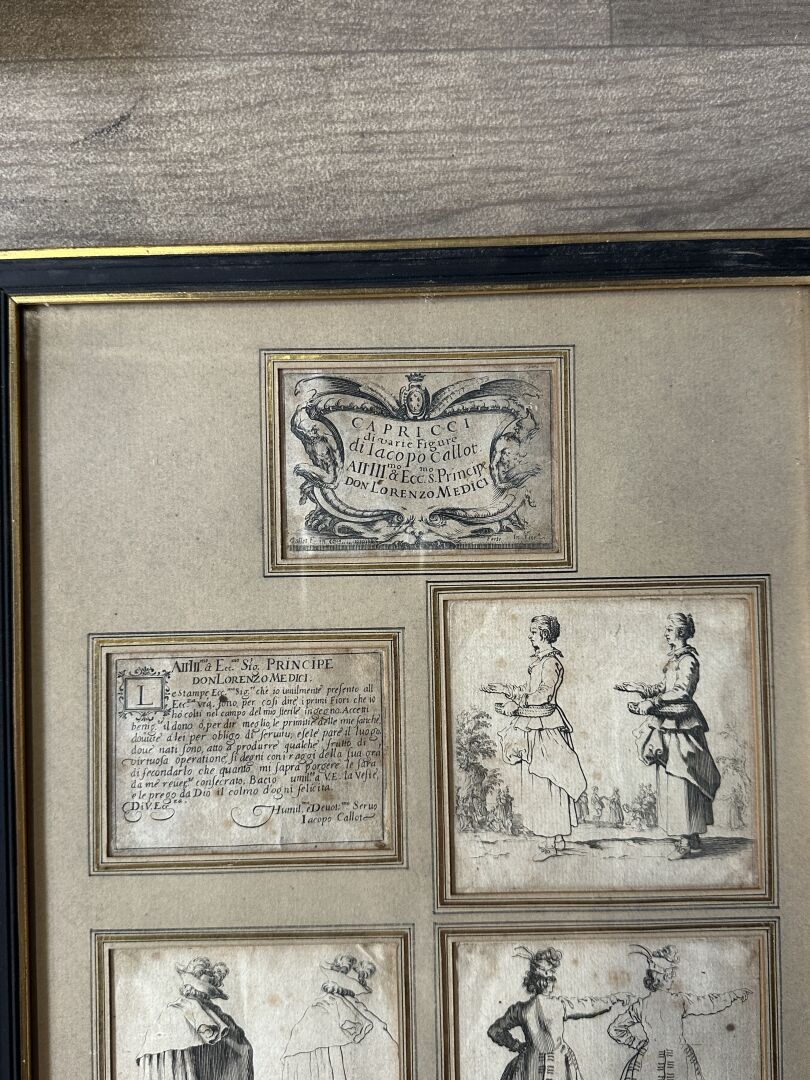 CAPRICCI
di varie Figure
di Iacopo Callot.
All Ill.mo & Ecc.mo S. Princip
DON LORENZO MEDICI
Callot F. in
All Ill.mo & Ecc.mo Sig. PRINCIPE
DON LORENZO MEDICI.
Le Stampe Ecc.mo Sig.re che io umilmente presento all
Ecc.za vrã, sono, per cosi dire, i primi Fiori che io
ho colti nel campo del mio sterile ingegno. Accetti
benig.te il dono ò, per dir meglio, le primitie delle mie fatiche,
douute à lei per obligo di seruitu, e se le pare il luogo,
doue nati sono, atto à produrre qualche frutto di
virtuosa operatione, si degni con i raggi della sua gra
di secondarlo che quanto mi saprà porgere le sarà
da me reuer.te consecrato. Bacio umil.te a V.E. la Veste,
e le prego da Dio il colmo d'ogni felicita.
Di V. Ecc.za
Humil. e Deuot.mo Seruo
Iacopo Callot